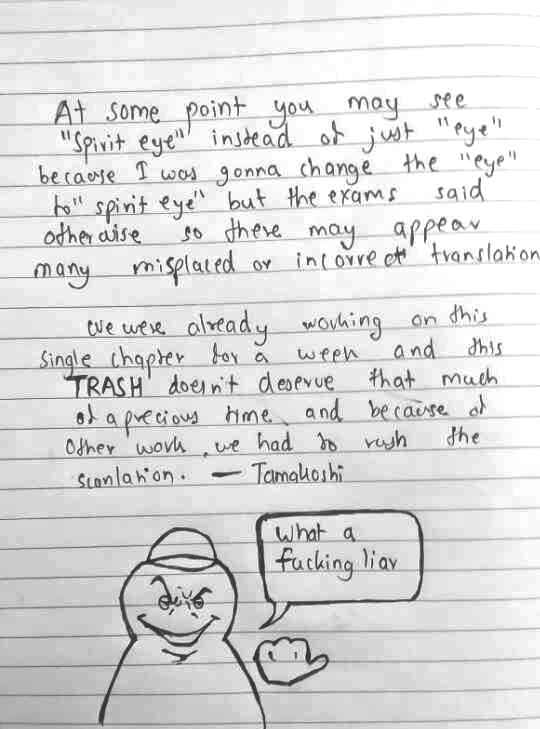 At some point you may see
"Spirit eye" instead of just "eye"
because I was gonna change the "eye"
to "spirit eye" but the exams said
otherwise so there may appear
many misplaced or incorrect translation
we were already working on this
single chapter for a week and this
TRASH doesn't deserve that much
of a precious time and because of
other work, we had to rush the
scanlation. — Tamakoshi
What a
fucking liar